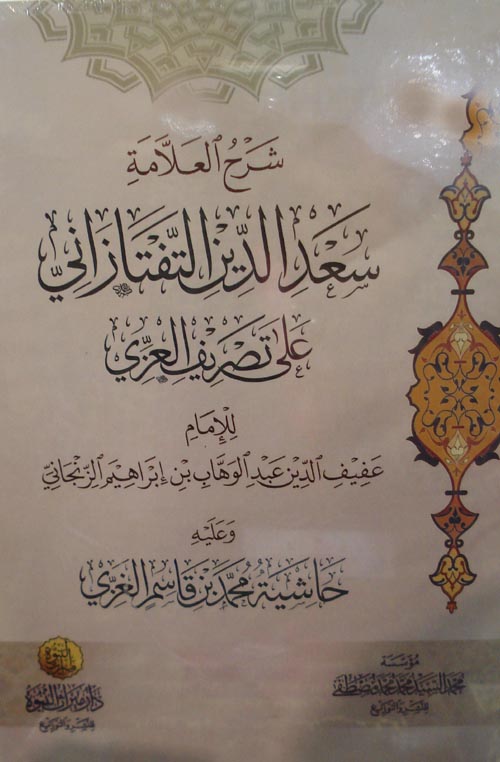 شَرْحُ العَلَّامَةِ
سَعْدِ الدِّينِ التَّفْتَازَانِيِّ
عَلَى تَصْرِيفِ العِزِّي
لِلْإِمَامِ
عَفِيفِ الدِّينِ عَبْدِ الوَهَّابِ بْنِ إِبْرَاهِيمَ الزَّنْجَانِيِّ
وَعَلَيْهِ
حَاشِيَةُ مُحَمَّدِ بْنِ قَاسِمٍ الغَزِّي
مؤسسة
محمد السيد محمد محمد مصطفى
للنشر والتوزيع
دار ميراث النبوة
للنشر والتوزيع